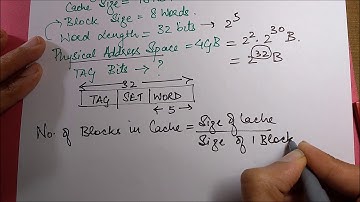 Cache Size =
Block Size = 8 Words.
Word Length = 32 bits → 2^5
Physical Address Space = 4GB = 2^2 · 2^30 B.
= 2^32 B
TAG Bits → ?
32
TAG SET WORD
5
No. of Blocks in Cache = Size of Cache
Size of 1 Block